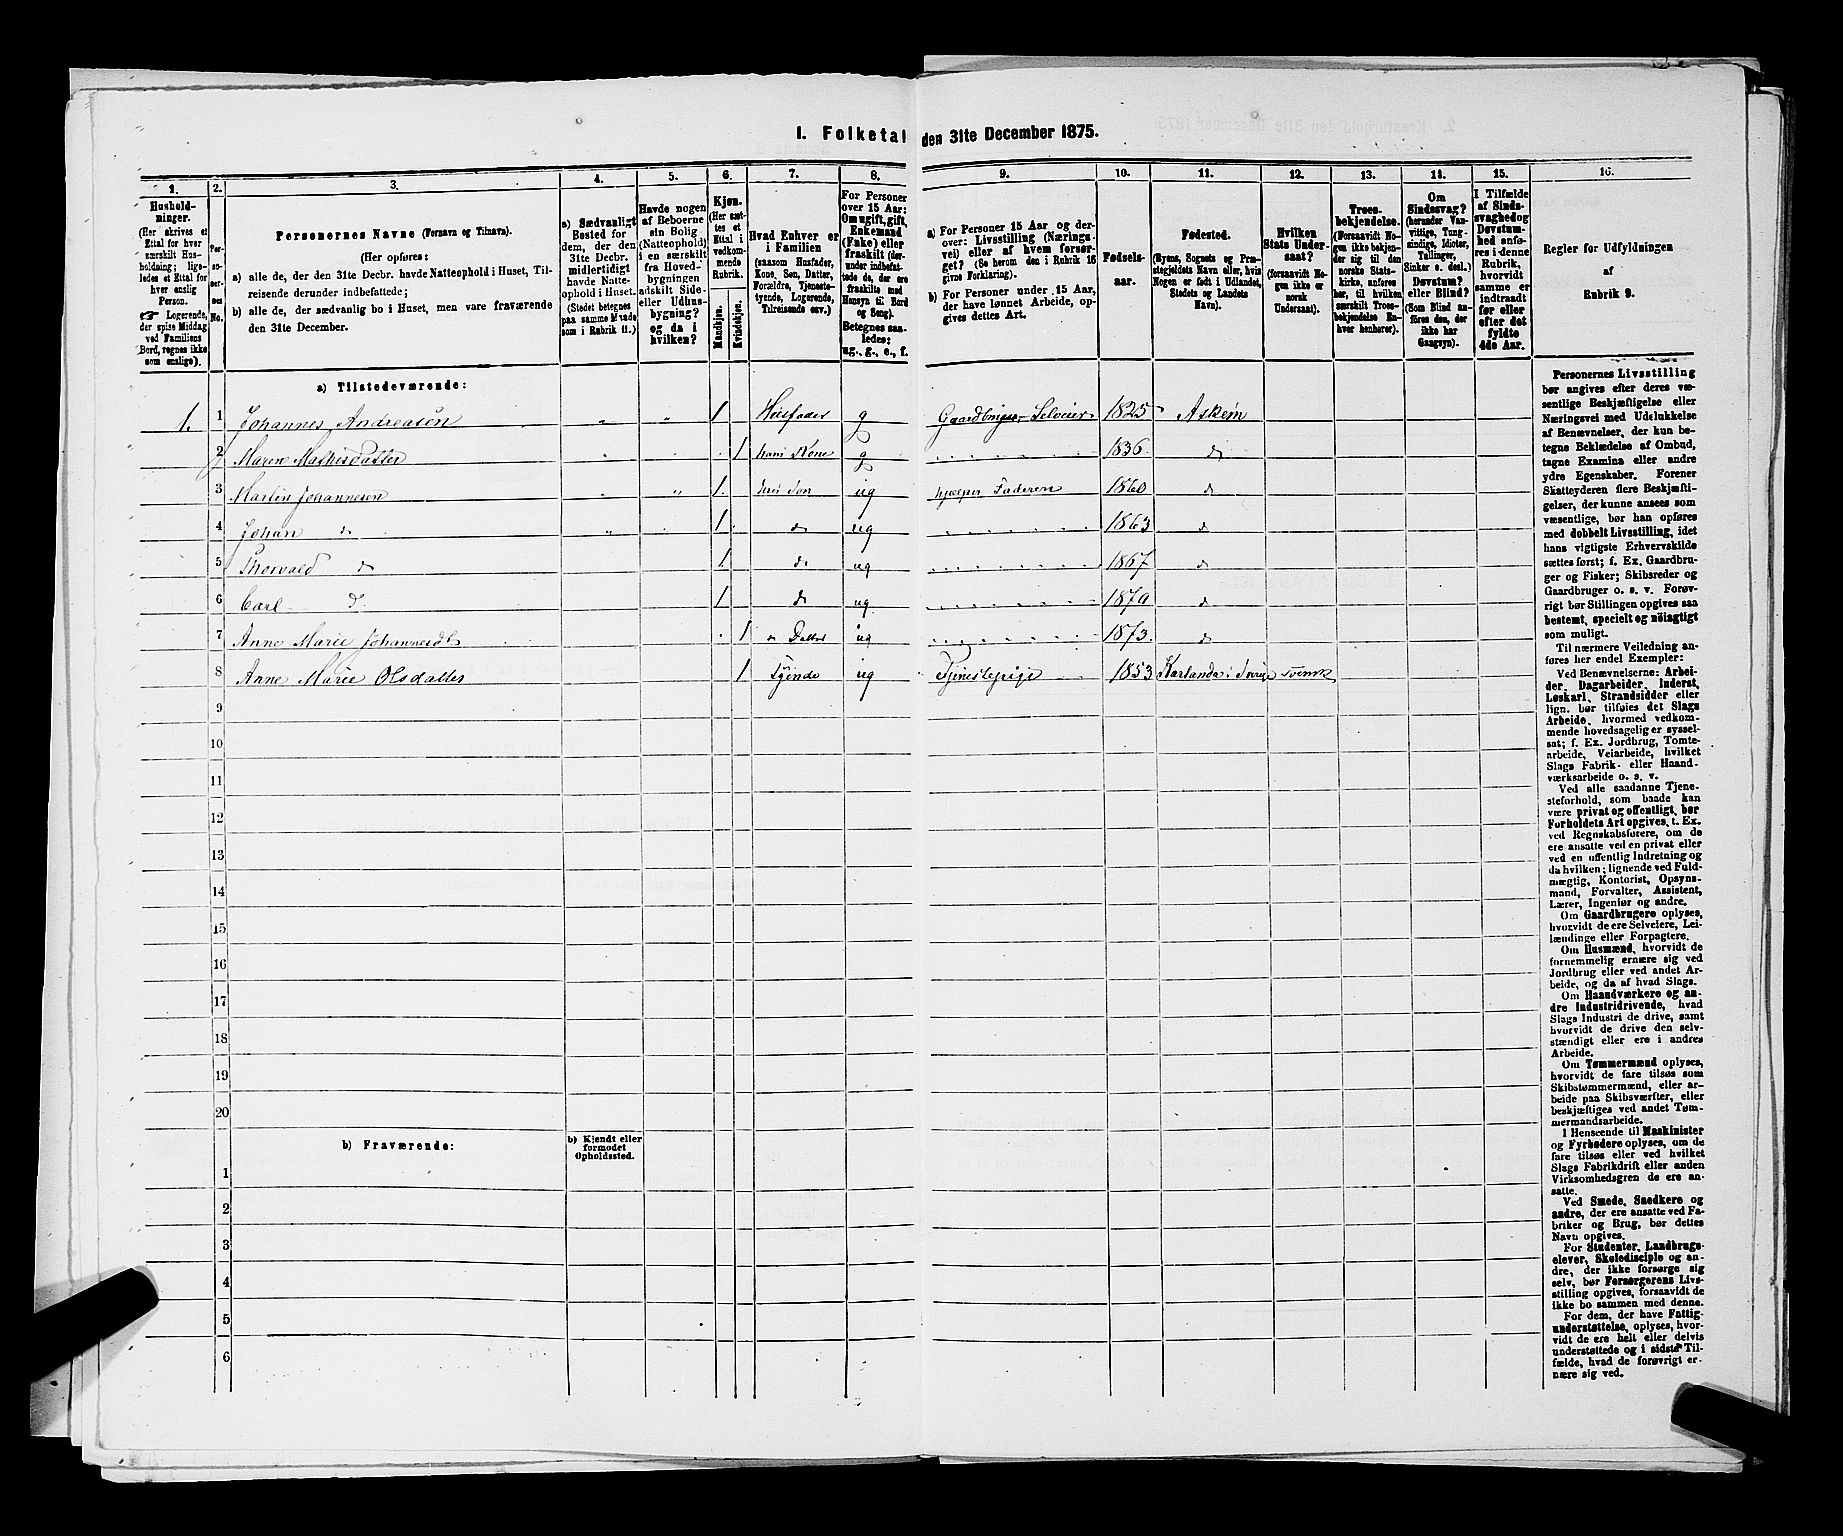 1. Folketal den 31te December 1875.
1. 2. 3. 4. 5. 6. 7. 8. 9. 10. 11. 12. 13. 14. 15. 16.
Hushold-
ninger.
(Her skrives et
Ettal for hver
særskilt Hus-
holdning; lige-
ledes et Ettal for
hver enslig
Person.
☞ Logerende,
der spise Middag
ved Familiens
Bord, regnes ikke
som enslige).
Per-
so-
ner-
nes
No.
Personernes Navne (Fornavn og Tilnavn).
(Her opføres:
a) alle de, der den 31te Decbr. havde Natteophold i Huset, Til-
reisende derunder indbefattede;
b) alle de, der sædvanlig bo i Huset, men vare fraværende
den 31te December.
a) Sædvanligt
Bosted for
dem, der den
31te Decbr.
midlertidigt
havde Natte-
ophold i Huset.
(Stedet betegnes
paa samme Maade
som i Rubrik 11.)
Havde nogen
af Beboerne
sin Bolig
(Natteophold)
i en særskilt
fra Hoved-
bygningen
adskilt Side-
eller Udhus-
bygning?
og da i
hvilken?
Kjøn.
(Her sæt-
tes et
Ettal i
vedkom-
mende
Rubrik.
Mandkjøn.
Kvindekjøn.
Hvad Enhver er
i Familien
(saasom Husfader,
Kone, Søn, Datter,
Forældre, Tjeneste-
tyende, Logerende,
Tilreisende osv.)
For Personer
over 15 Aar:
Om ugift, gift,
Enkemand
(Enke) eller
fraskilt (der-
under indbefat-
tede de, der ere
fraskilte med
Hensyn til Bord
og Seng).
Betegnes saa-
ledes:
ug., g., e., f.
a) For Personer 15 Aar og der-
over: Livsstilling (Nærings-
vei) eller af hvem forsør-
get? (Se herom den i Rubrik 16
givne Forklaring).
b) For Personer under 15 Aar,
der have lønnet Arbeide, op-
gives dettes Art.
Fødsels-
aar.
Fødested.
(Byens, Sognets og Præ-
stegjeldets Navn eller, hvis
Nogen er født i Udlandet,
Stedets og Landets
Navn).
Hvilken
Stats Under-
saat?
(forsaavidt No-
gen ikke er
norsk
Undersaat).
Troes-
bekjendelse.
(Forsaavidt No-
gen ikke bekjen-
der sig til den
norske Stats-
kirke, anføres
her, til hvilken
særskilt Troes-
bekjendelse En-
hver henhører).
Om
Sindssvag?
(herunder Van-
vittige, Tung-
sindige, Idioter,
Tullinger,
Sinker o. desl.)
Døvstum?
eller Blind?
(Som Blind an-
føres den, der
ikke har
Gangsyn).
I Tilfælde
af Sinds-
svaghed og
Døvstum-
hed anfø-
res i denne
Rubrik,
hvorvidt
samme er
indtraadt
før eller
efter det
fyldte
4de Aar.
Regler for Udfyldningen
af
Rubrik 9.
a) Tilstedeværende:
1. 1 Johannes Andreasen 1 Husfader g Gaardbruger Selveier 1825 Askim
2 Maren Mathisdatter 1 hans Kone g 1836 d
3 Martin Johannesen 1 Søn ug hjelper Faderen 1860 d
4 Johan d 1 d ug 1863 d
5 Thorvald d 1 d ug 1867 d
6 Carl d 1 d ug 1870 d
7 Anne Marie Johannesdt 1 Datter ug 1873 d
8 Anne Marie Olsdatter 1 Tyende ug Tjenestepige 1853 Karlanda i Sverige svensk
9
10
11
12
13
14
15
16
17
18
19
20
b) Fraværende:
b) Kjendt eller
formodet
Opholdssted.
1
2
3
4
5
6
Personernes Livsstilling
bør angives efter deres væ-
sentlige Beskjæftigelse eller
Næringsvei med Udelukkelse
af Benævnelser, der kun be-
tegne Beklædelse af Ombud,
tagne Examina eller andre
ydre Egenskaber. Forener
Skatteyderen flere Beskjæfti-
gelser, der kunne ansees som
væsentlige, bør han opføres
med dobbelt Livsstilling, idet
hans vigtigste Erhvervskilde
sættes først; f. Ex. Gaardbru-
ger og Fisker; Skibsreder og
Gaardbruger o. s. v. Forøv-
rigt bør Stillingen opgives saa
bestemt, specielt og nöiagtigt
som muligt.
Til nærmere Veiledning an-
føres her endel Exempler:
Ved Benævnelserne: Arbei-
der, Dagarbeider, Inderst,
Løskarl, Strandsidder eller
lign. bør tilføies det Slags
Arbeide, hvormed vedkom-
mende hovedsagelig er syssel-
sat; f. Ex. Jordbrug, Tomte-
arbeide, Veiarbeide, hvilket
Slags Fabrik- eller Haand-
værksarbeide o. s. v.
Ved alle saadanne Tjene-
steforhold, som baade kan
være privat og offentligt, bør
Forholdets Art opgives, t. Ex.
ved Regnskabsførere, om de
ere ansatte ved en privat eller
ved en offentlig Indretning og
da hvilken; lignende ved Fuld-
mægtig, Kontorist, Opsyns-
mand, Forvalter, Assistent,
Lærer, Ingeniør og andre.
Om Gaardbrugere oplyses,
hvorvidt de ere Selveiere, Lei-
lændinge eller Forpagtere.
Om Husmænd, hvorvidt de
fornemmelig ernære sig ved
Jordbrug eller ved andet Ar-
beide, og da af hvad Slags.
Om Haandværkere og an-
dre Industridrivende, hvad
Slags Industri de drive, samt
hvorvidt de drive den selv-
stændigt eller ere i andres
Arbeide.
Om Tømmermænd oplyses,
hvorvidt de fare tilsøs som
Skibstømmermænd, eller ar-
beide paa Skibsværfter, eller
beskjæftiges ved andet Tøm-
mermandsarbeide.
I Henseende til Maskinister
og Fyrbødere oplyses, om de
fare tilsøs eller ved hvilket
Slags Fabrikdrift eller anden
Virksomhedsgren de ere an-
satte.
Ved Smede, Snedkere og
andre, der ere ansatte ved Fa-
briker og Brug, bør dettes
Navn opgives.
For Studenter, Landbrugs-
elever, Skoledisciple og an-
dre, der ikke forsørge sig
selv, bør Forsørgerens Livs-
stilling opgives, forsaavidt de
ikke bo sammen med denne.
For dem, der have Fattig-
understøttelse, oplyses, hvor-
vidt de ere helt eller delvis
understøttede og i sidste Til-
fælde, hvad de forøvrigt er-
nære sig ved.